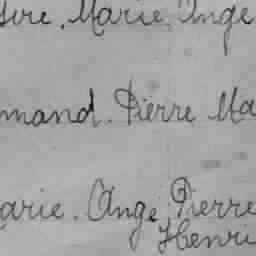 Marie, Ange
mand. Pierre Ma
arie. Ange, Pierre
Henri